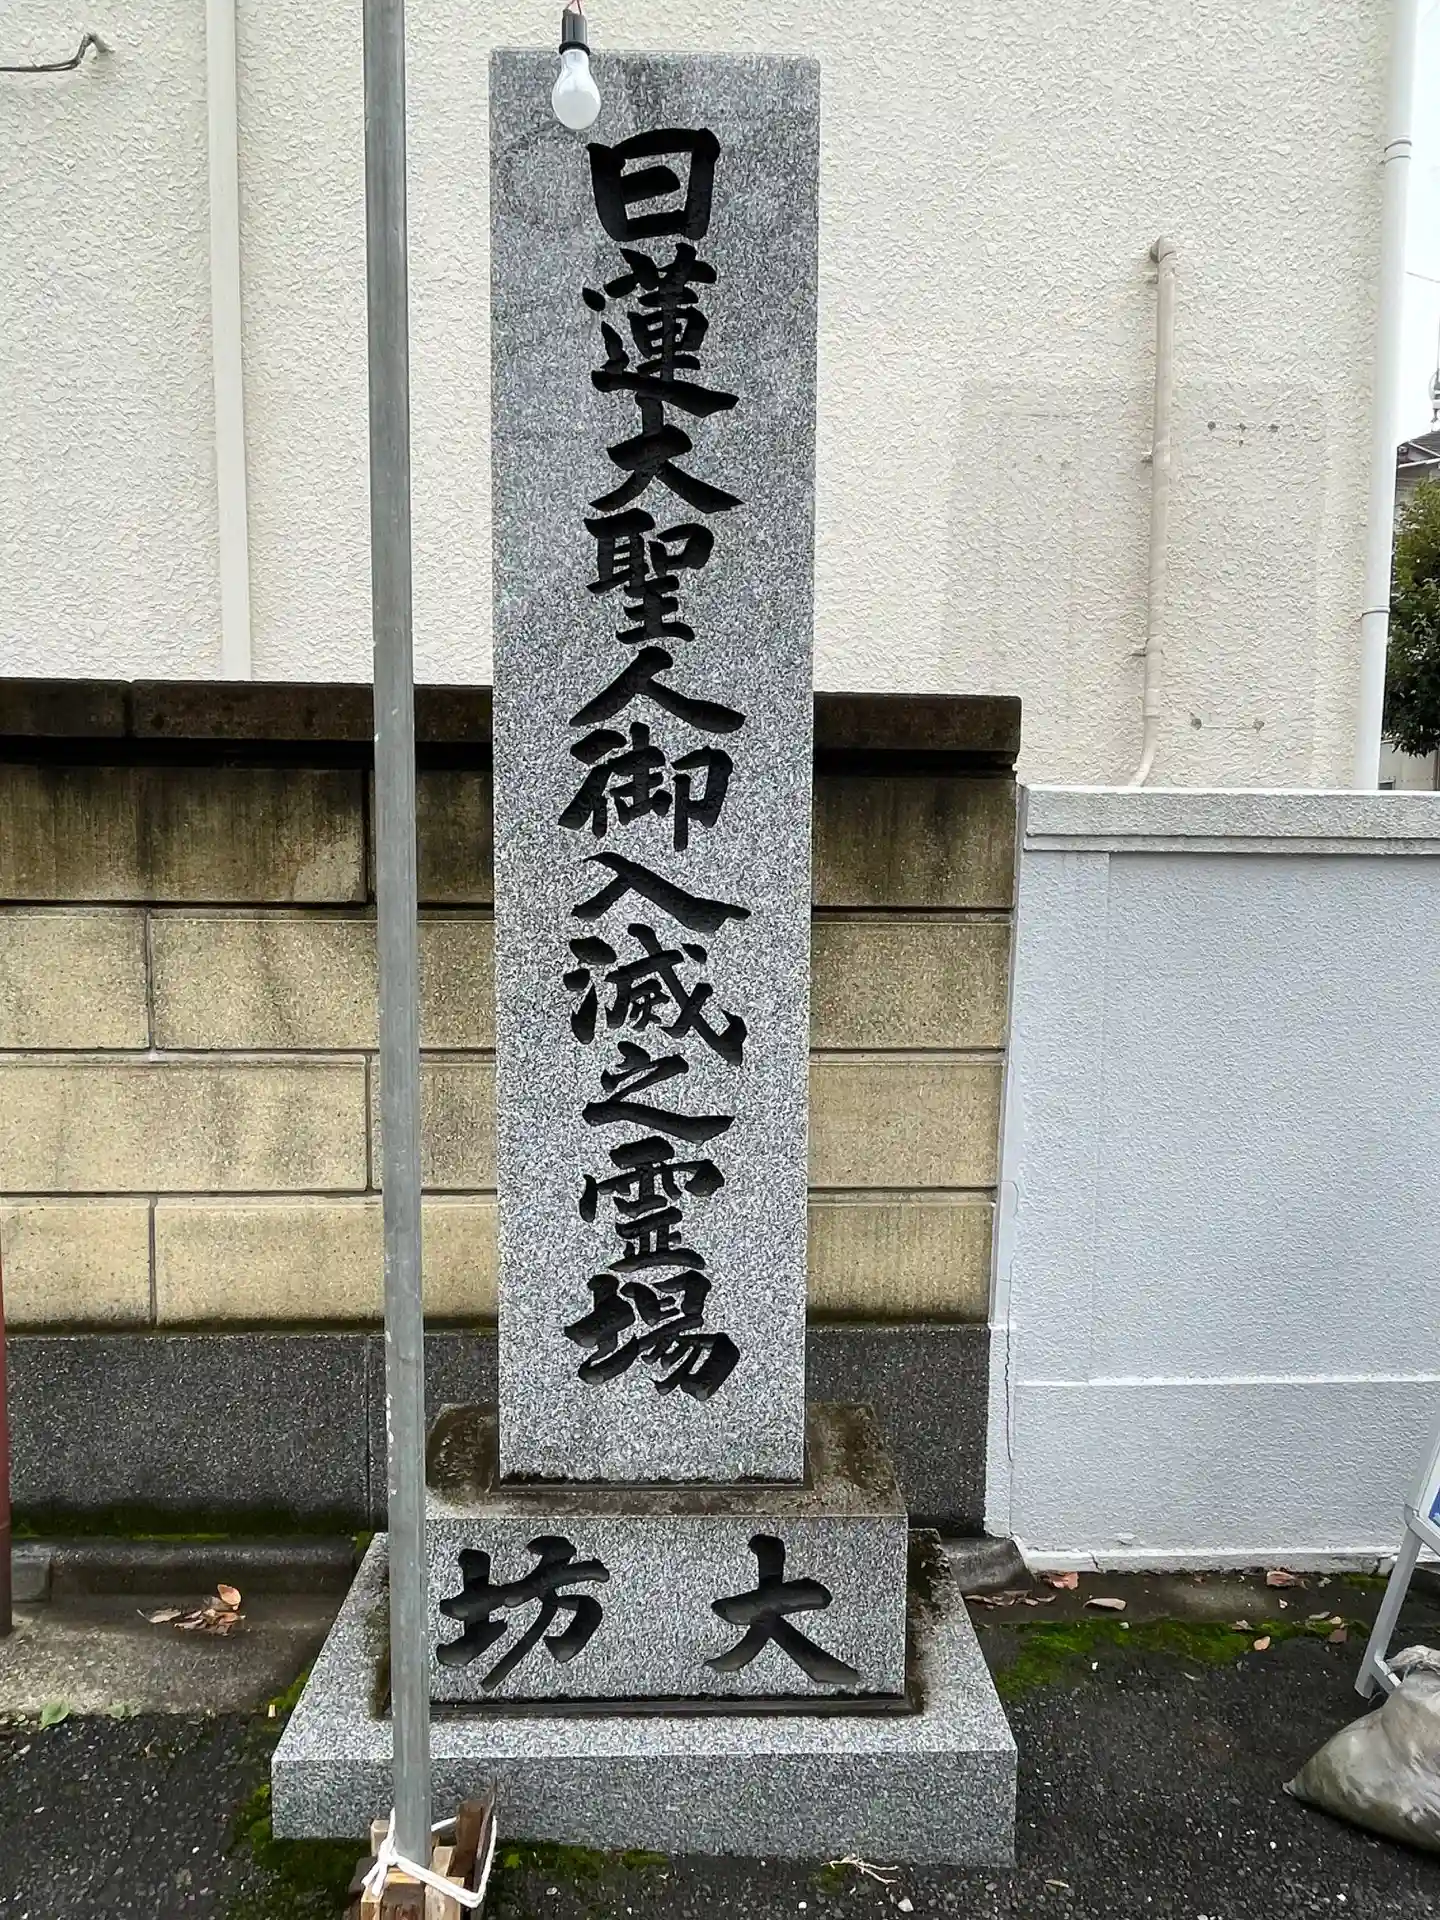 日蓮大聖人御入滅之霊場
大坊